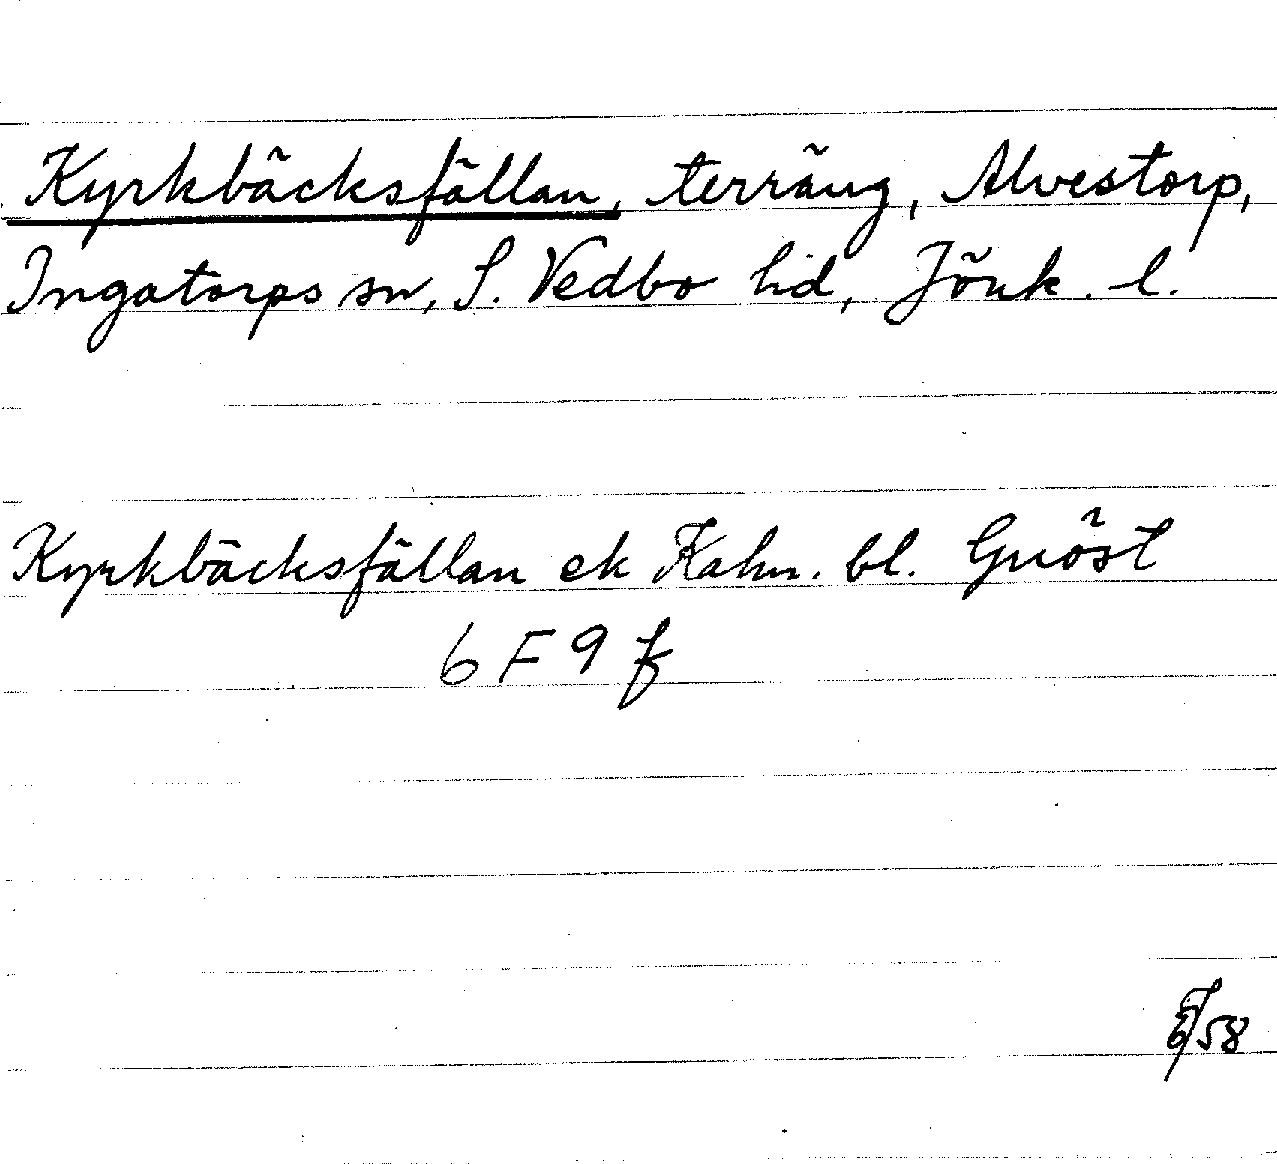 Kyrkbäcksfällan, terräng, Alvestorp,
Ingatorps sn, S. Vedbo hd, Jönk. l.
Kyrkbäcksfällan ek Kahn. bl. Gnöst
6 F 9 f
58